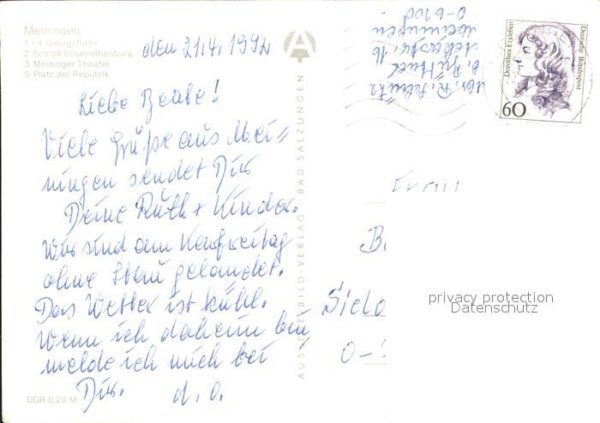 Meiningen
1+4 Georgstraße
2 Schloß Elisabethenburg
3 Meininger Theater
5 Platz der Republik
den 21.4.1992
Liebe Beate!
Viele Grüße aus Mei-
ningen sendet Dir
Deine Ruth + Kinder.
Wir sind am Karfreitag
ohne Stau gelandet.
Das Wetter ist kühl.
Wenn ich daheim bin
melde ich mich bei
Dir. d. O.
DDR 0,20 M
BILD-VERLAG BAD SALZUNGEN
Meiningen
O-6100
Dorothea Erxleben
Deutsche Bundespost
60
Frau
B
O-
privacy protection
Datenschutz